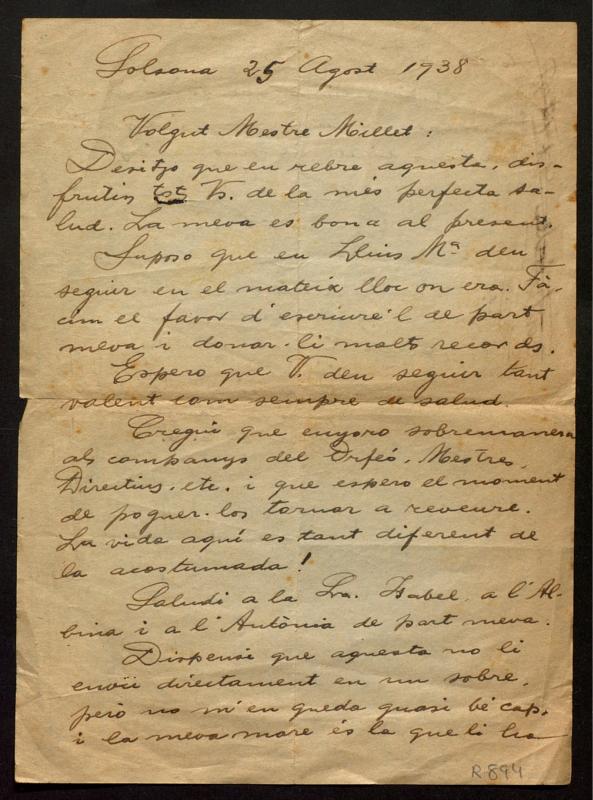 Solsona 25 Agost 1938
Volgut Mestre Millet:
Desitjo que en rebre aquesta, dis-
frutin tots Vs. de la més perfecta sa-
lud. La meva es bona al present.
Suposo que en Lluis Mª deu
seguir en el mateix lloc on era. Fà-
cim el favor d'escriure'l de part
meva i donar-li molts records.
Espero que V. deu seguir tant
valent com sempre de salud.
Cregui que enyoro sobremanera
als companys del Orfeó, Mestres,
Directius, etc. i que espero el moment
de poguer-los tornar a reveure.
La vida aquí es tant diferent de
la acostumada!
Saludi a la Sra. Isabel, a l'Al-
bina i a l'Antònia de part meva.
Dispensi que aquesta no li
envii directament en un sobre,
però no m'en queda quasi bé cap,
i la meva mare és la que li ha
R-894